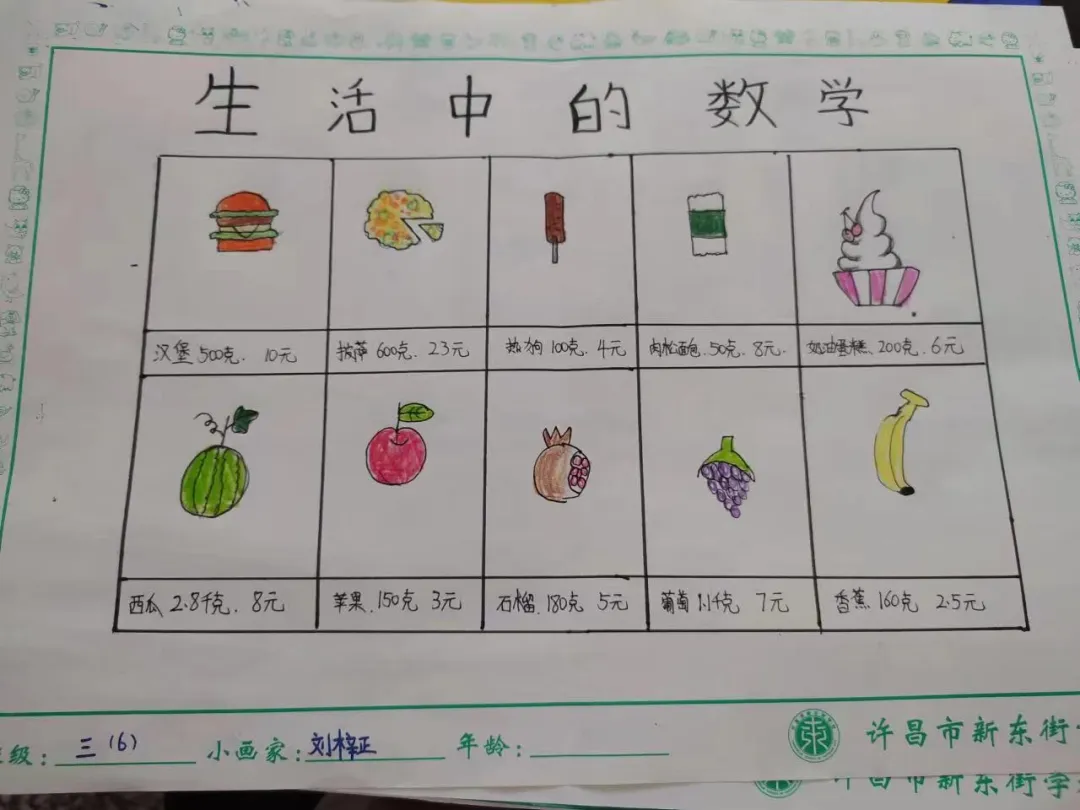 生活中的数学
汉堡 500克. 10元
披萨 600克. 23元
热狗 100克. 4元
肉松面包. 50克. 8元.
奶油蛋糕. 200克. 6元
西瓜 2.8千克. 8元
苹果. 150克 3元
石榴. 180克 5元
葡萄 1.1千克 7元
香蕉 160克 2.5元
级: 三(6) 小画家: 刘梓正 年龄:
许昌市新东街
许昌市新东街学